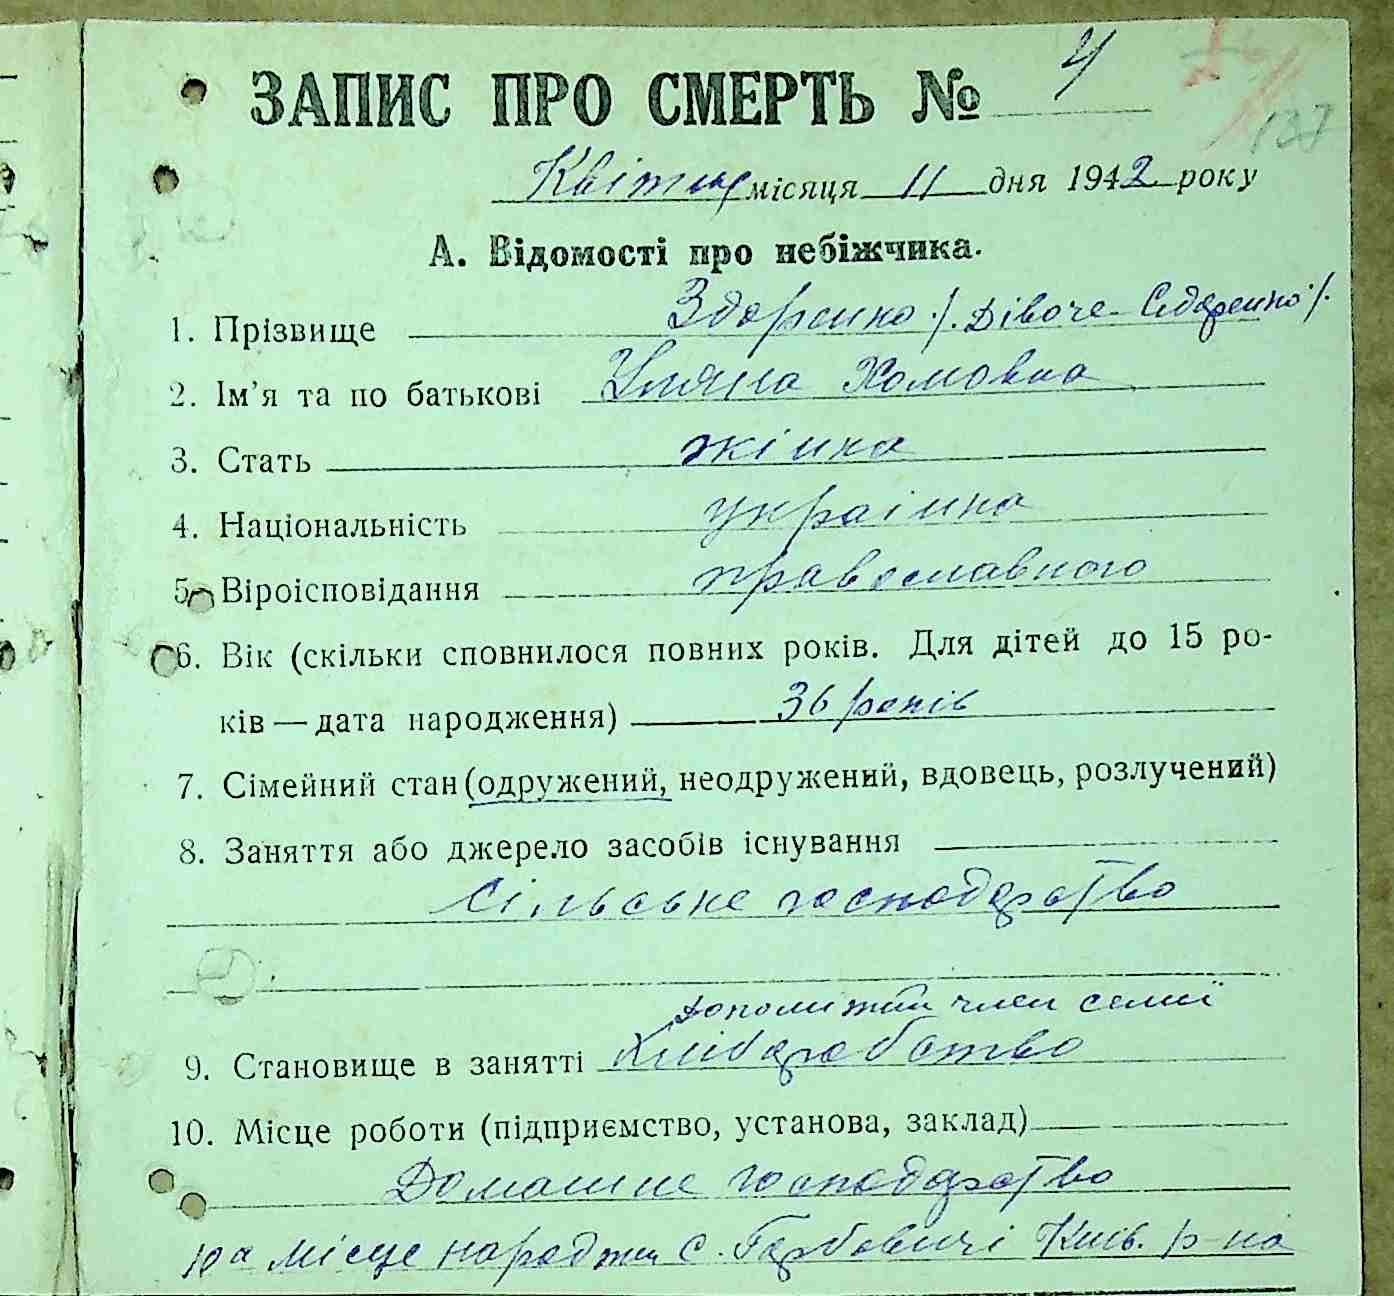 ЗАПИС ПРО СМЕРТЬ № 4
137
Квітня місяця 11 дня 1942 року
А. Відомості про небіжчика.
1. Прізвище Здоренко /. Дівоче - Сидоренко /.
2. Ім'я та по батькові Уляна Хомовна
3. Стать жінка
4. Національність українка
5. Віроісповідання православного
6. Вік (скільки сповнилося повних років. Для дітей до 15 ро-
ків — дата народження) 36 років
7. Сімейний стан (одружений, неодружений, вдовець, розлучений)
8. Заняття або джерело засобів існування
Сільське господарство
допоміжний член семії
9. Становище в занятті Хліборобство
10. Місце роботи (підприємство, установа, заклад)
Домашнє господарство
10а Місце народжен с. Гарбовичі Київ. р-на